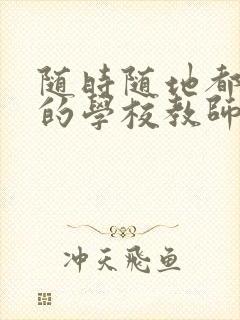 随時随地都
的學校教師
冲天飛魚